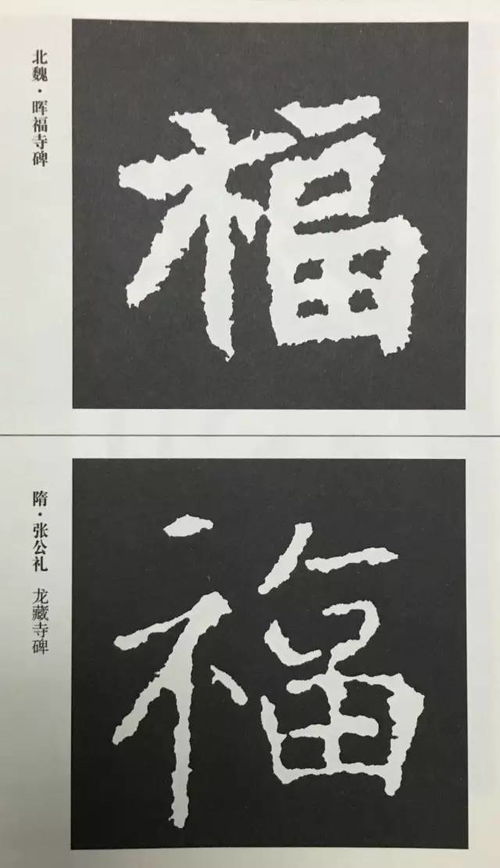 北魏·晖福寺碑
福
隋·张公礼 龙藏寺碑
福